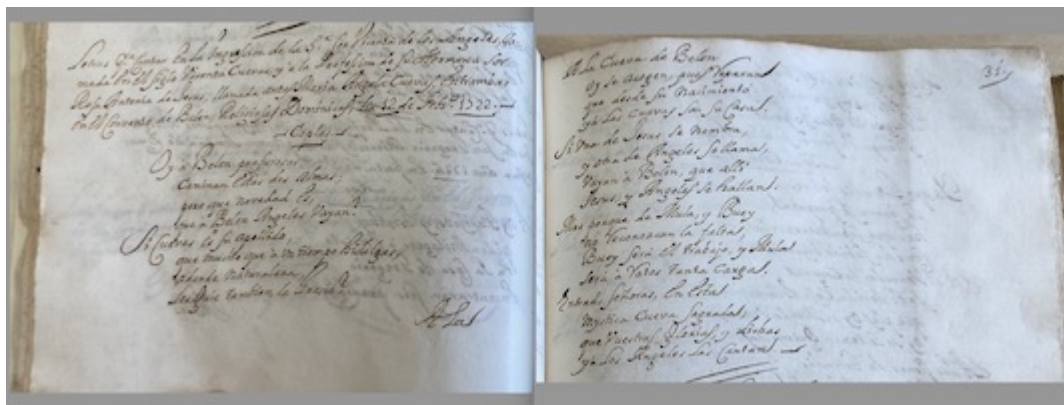 Letras Para cantar En la Ingression de la Sra. Vicenta de los Angeles, lla-
mada en el siglo Vicenta Cuevas, y a la Profesion de su Hermana Sor
Rosa Antonia de Jesus, llamada antes Maria Cuevas, Entrambas
en el Convento de Belen, Religiosas Dominicas, 12 de 1722.
Coplas
Oy a Belen
Caminan Estas dos Almas;
que novedad Es,
que a Belen Angeles Vayan?
Si Cuevas es su apellido,
que mucho que a un tiempo
adonde naturaleza,
tambien la Gracia?
A la
31.
A la Cueva de Belen
Oy se acogen, pues
que desde su Nacimiento
ya Las Cuevas son su Casa.
Si Una de Jesus se nombra,
y otra de Angeles se llama,
Vayan a Belen, que alli
Jesus, y Angeles se hallan.
Mas porque de Mula, y Buey
no reconozcan la falta,
Buey será el trabajo, y Mula
será a Vezes tanta Carga.
Entrad, Señoras, En esta
Mystica Cueva Sagrada,
que Vuestras Glorias, y dichas
ya Los Angeles Las Cantan.